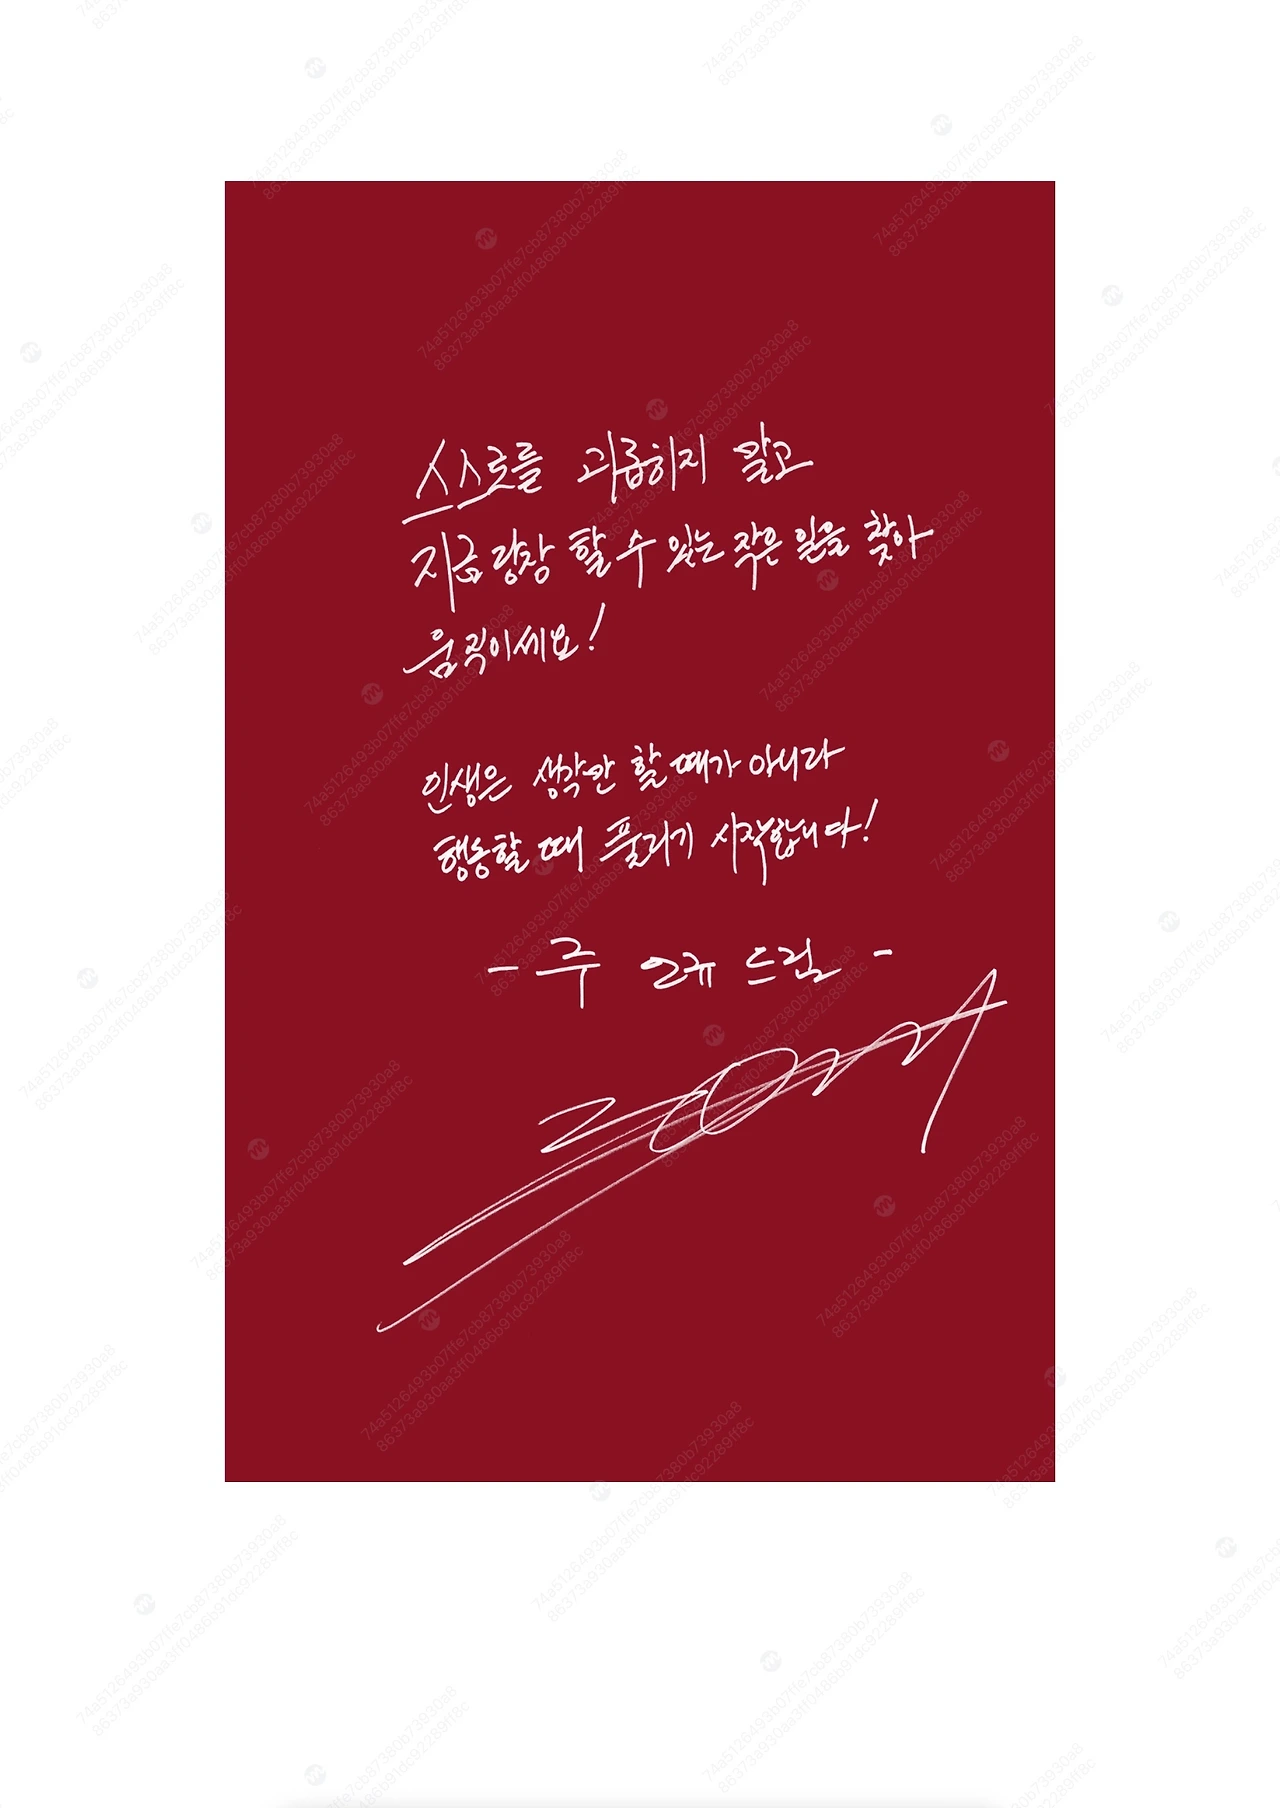 스스로를 괴롭히지 말고
지금 당장 할 수 있는 작은 일을 찾아
움직이세요!
인생은 생각만 할 때가 아니라
행동할 때 풀리기 시작합니다!
- 주 언규 드림 -